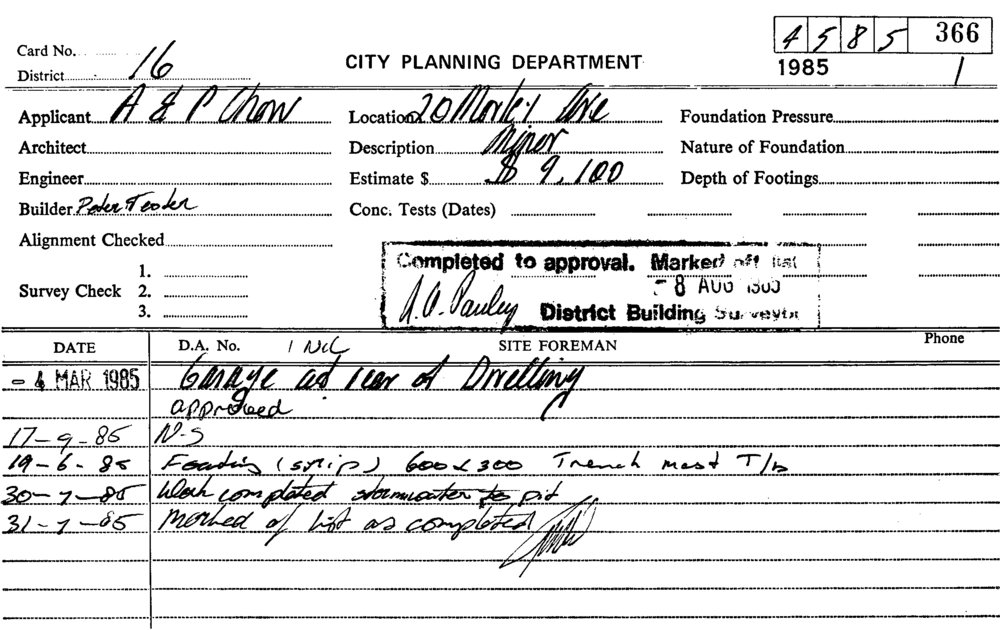 4585 366
Card No.
District 16
CITY PLANNING DEPARTMENT
1985 1
Applicant A & P Chow Location 20 Morley Ave Foundation Pressure
Architect Description Minor Nature of Foundation
Engineer Estimate $ $ 9,100 Depth of Footings
Builder Peter Conc. Tests (Dates)
Alignment Checked
Survey Check 1. 2. 3.
Completed to approval. Marked off list
- 8 AUG 1985
District Building Surveyor
DATE D.A. No. SITE FOREMAN Phone
- 4 MAR 1985 Garage at rear of Dwelling
approved
17-9-85 N-S
19-6-85 Footing (strip) 600x300 Trench mesh T/B
30-7-85 Work completed stormwater to pit
31-7-85 Marked of list as completed